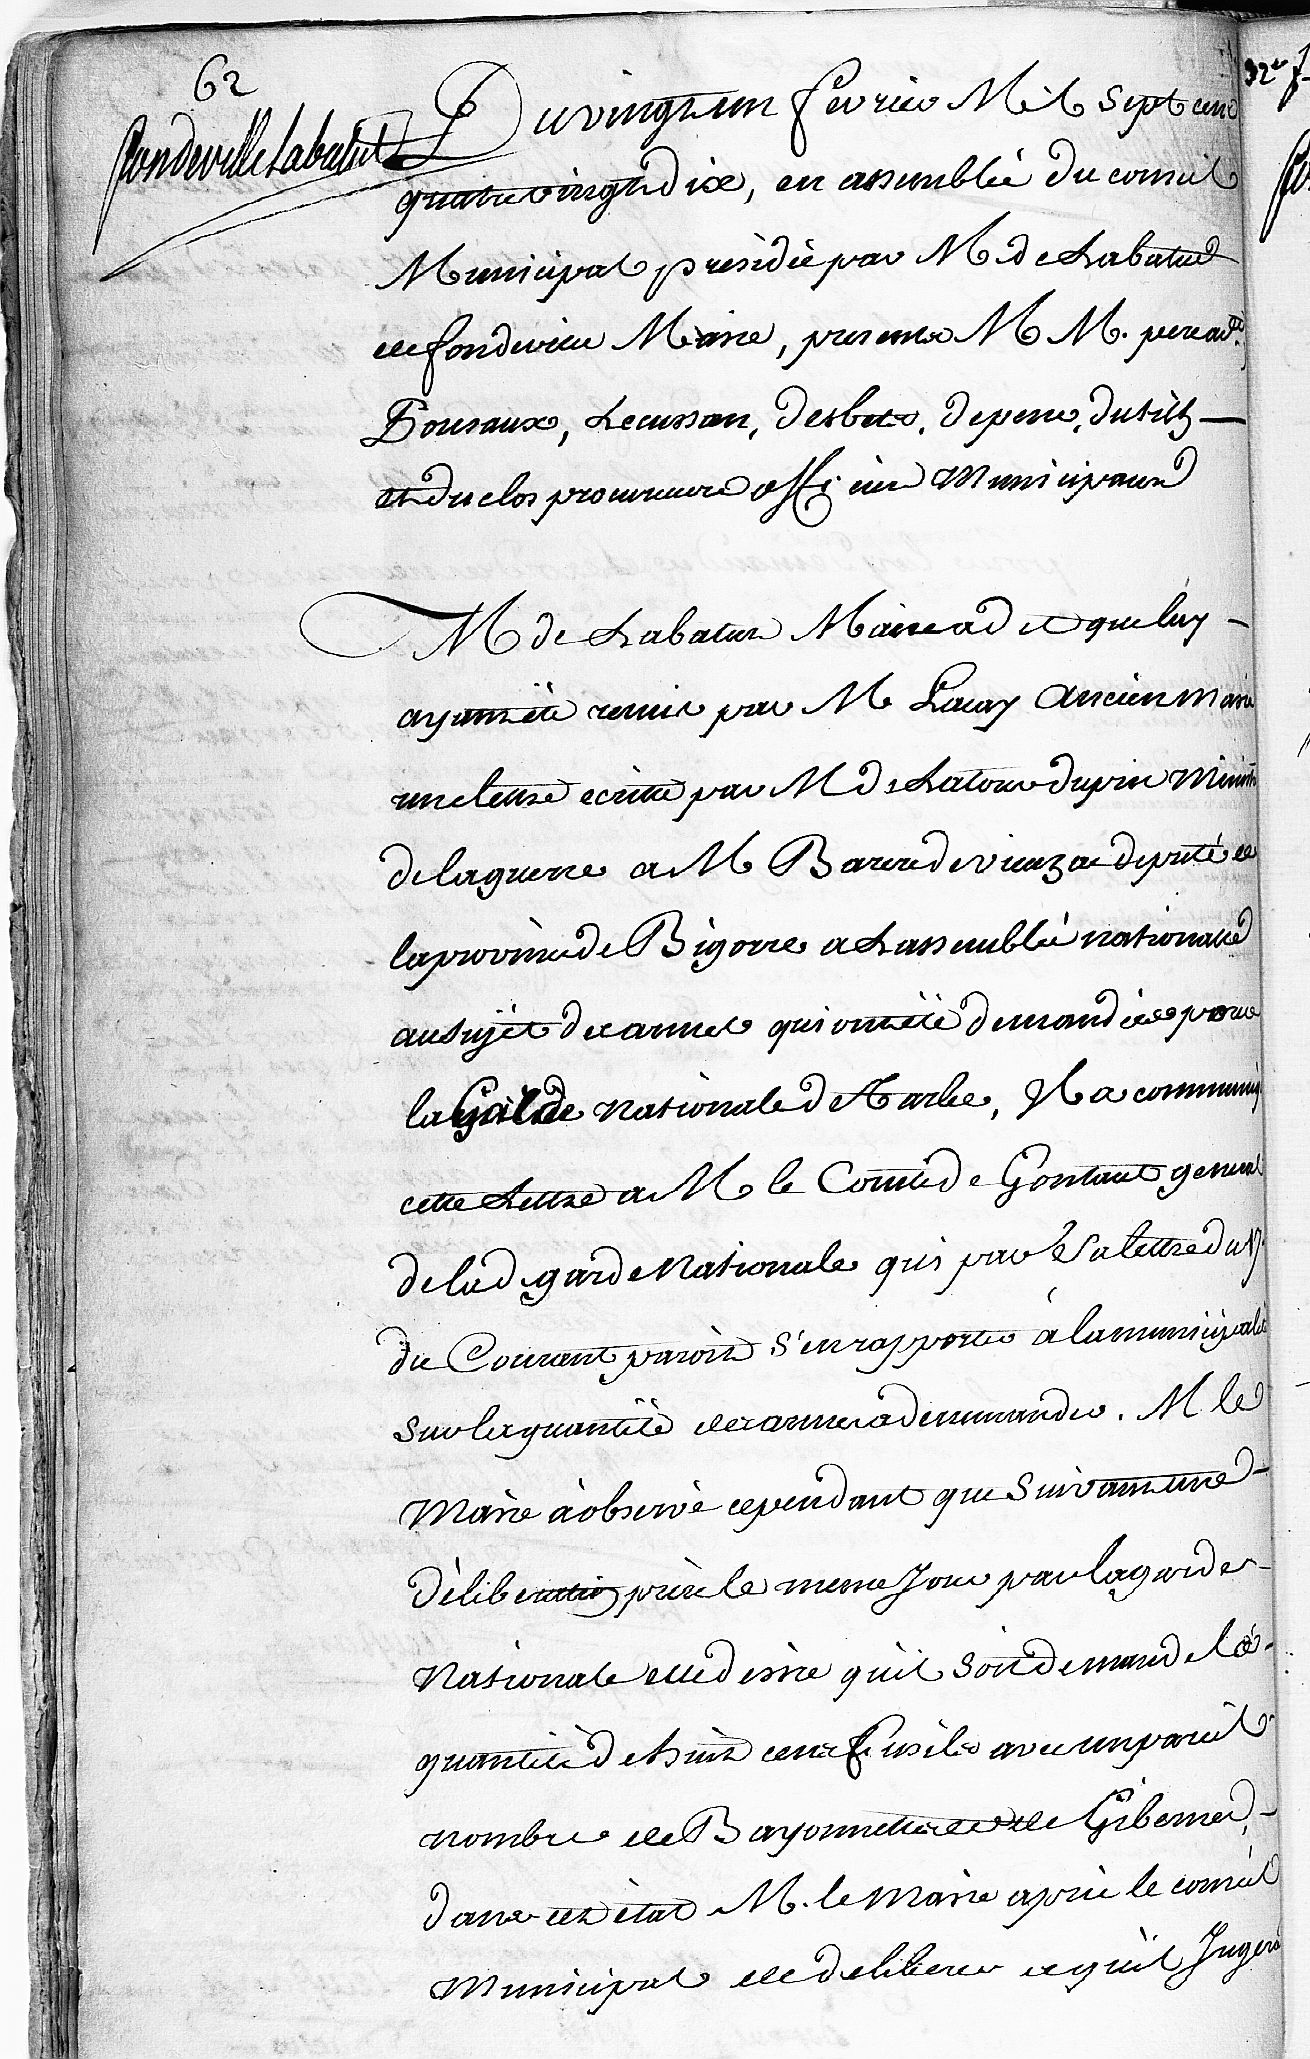 62
fondeville Labatut
Du vingt un fevrier Mil Sept cent
quatre vingt dix, en assemblée du conseil
Municipal présidée par M de Labatut
de fondeville Maire, presents M M. pere
Lousaux, Lecussan, desbets, depene, dutilh
et duclos procureur officiers Municipaux
M de Labatut Maire a dit que luy
ayant été remis par M Lacay Ancien Maire
une lettre ecritte par M de Latour dupin Ministre
de la guerre a M Barere de vieuzac deputé de
la province de Bigorre a Lassemblée nationalle
au sujet des armes qui ont été demandées pour
la Garde nationale de Tarbe, Il a communiqué
cette Lettre a M le Comte de Gontaut general
de lad garde Nationale qui par Sa lettre du 17
du Courant paroit S'en rapporter à la municipalité
sur la quantité des armes a demmander. M le
Maire à observé cependant que suivant une
déliberation prise le meme Jour par la garde
Nationale elle desire quil soit demandé la
quantité de huit cent fusils avec un pareil
nombre de Bayonnettes et de Gibernes,
dans cet état M. le Maire a prié le conseil
Municipal de deliberer ce quil Jugera